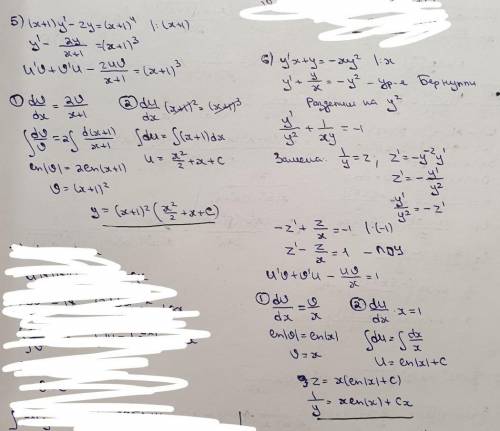 5) (x+1)y' - 2y = (x+1)⁴ |:(x+1)
y' - 2y/(x+1) = (x+1)³
u'υ + υ'u - 2uυ/(x+1) = (x+1)³
① dυ/dx = 2υ/(x+1)
∫dυ/υ = 2∫d(x+1)/(x+1)
ln|υ| = 2ln(x+1)
υ = (x+1)²
② du/dx (x+1)² = (x+1)³
∫du = ∫(x+1)dx
u = x²/2 + x + C
y = (x+1)² (x²/2 + x + C)
6) y'x + y = -xy² |:x
y' + y/x = -y² - ур-е Бернулли
Разделим на y²
y'/y² + 1/xy = -1
Замена: 1/y = z, z' = -y⁻²y'
z' = -y'/y²
y'/y² = -z'
-z' + z/x = -1 |·(-1)
z' - z/x = 1 - ЛДУ
u'υ + υ'u - uυ/x = 1
① dυ/dx = υ/x
ln|υ| = ln|x|
υ = x
② du/dx · x = 1
∫du = ∫dx/x
u = ln|x| + C
z = x(ln|x| + C)
1/y = xln(x) + Cx